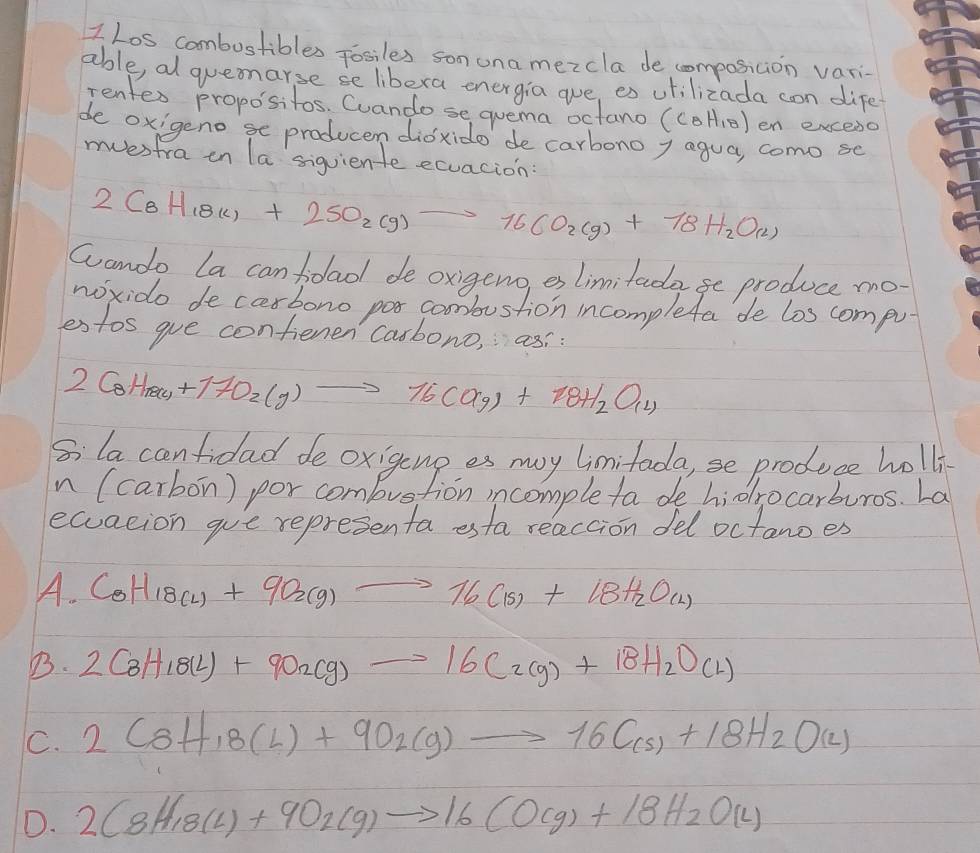 1 Los combustibles fósiles son una mezcla de composición vari-
able, al quemarse se libera energía que, es utilizada con dife-
rentes propósitos. Cuando se quema octano (C8H18) en exceso
de oxígeno se producen dióxido de carbono y agua, como se
muestra en la siguiente ecuación:
2 C8 H18(L) + 25O2(g) → 16CO2(g) + 18 H2O(L)
Cuando la cantidad de oxigeno es limitada se produce mo-
nóxido de carbono por combustión incompleta de los compu-
estos que contienen carbono, así:
2 C8H18(L) + 17O2(g) → 16CO(g) + 18H2O(L)
Si la cantidad de oxígeno es muy limitada, se produce hollí-
n (carbón) por combustión incompleta de hidrocarburos. La
ecuación que representa esta reacción del octano es
A. C8H18(L) + 9O2(g) → 16 C(s) + 18H2O(L)
B. 2C8H18(L) + 9O2(g) → 16C2(g) + 18H2O(L)
C. 2 C8H18(L) + 9O2(g) → 16C(s) + 18H2O(L)
D. 2C8H18(L) + 9O2(g) → 16CO(g) + 18H2O(L)